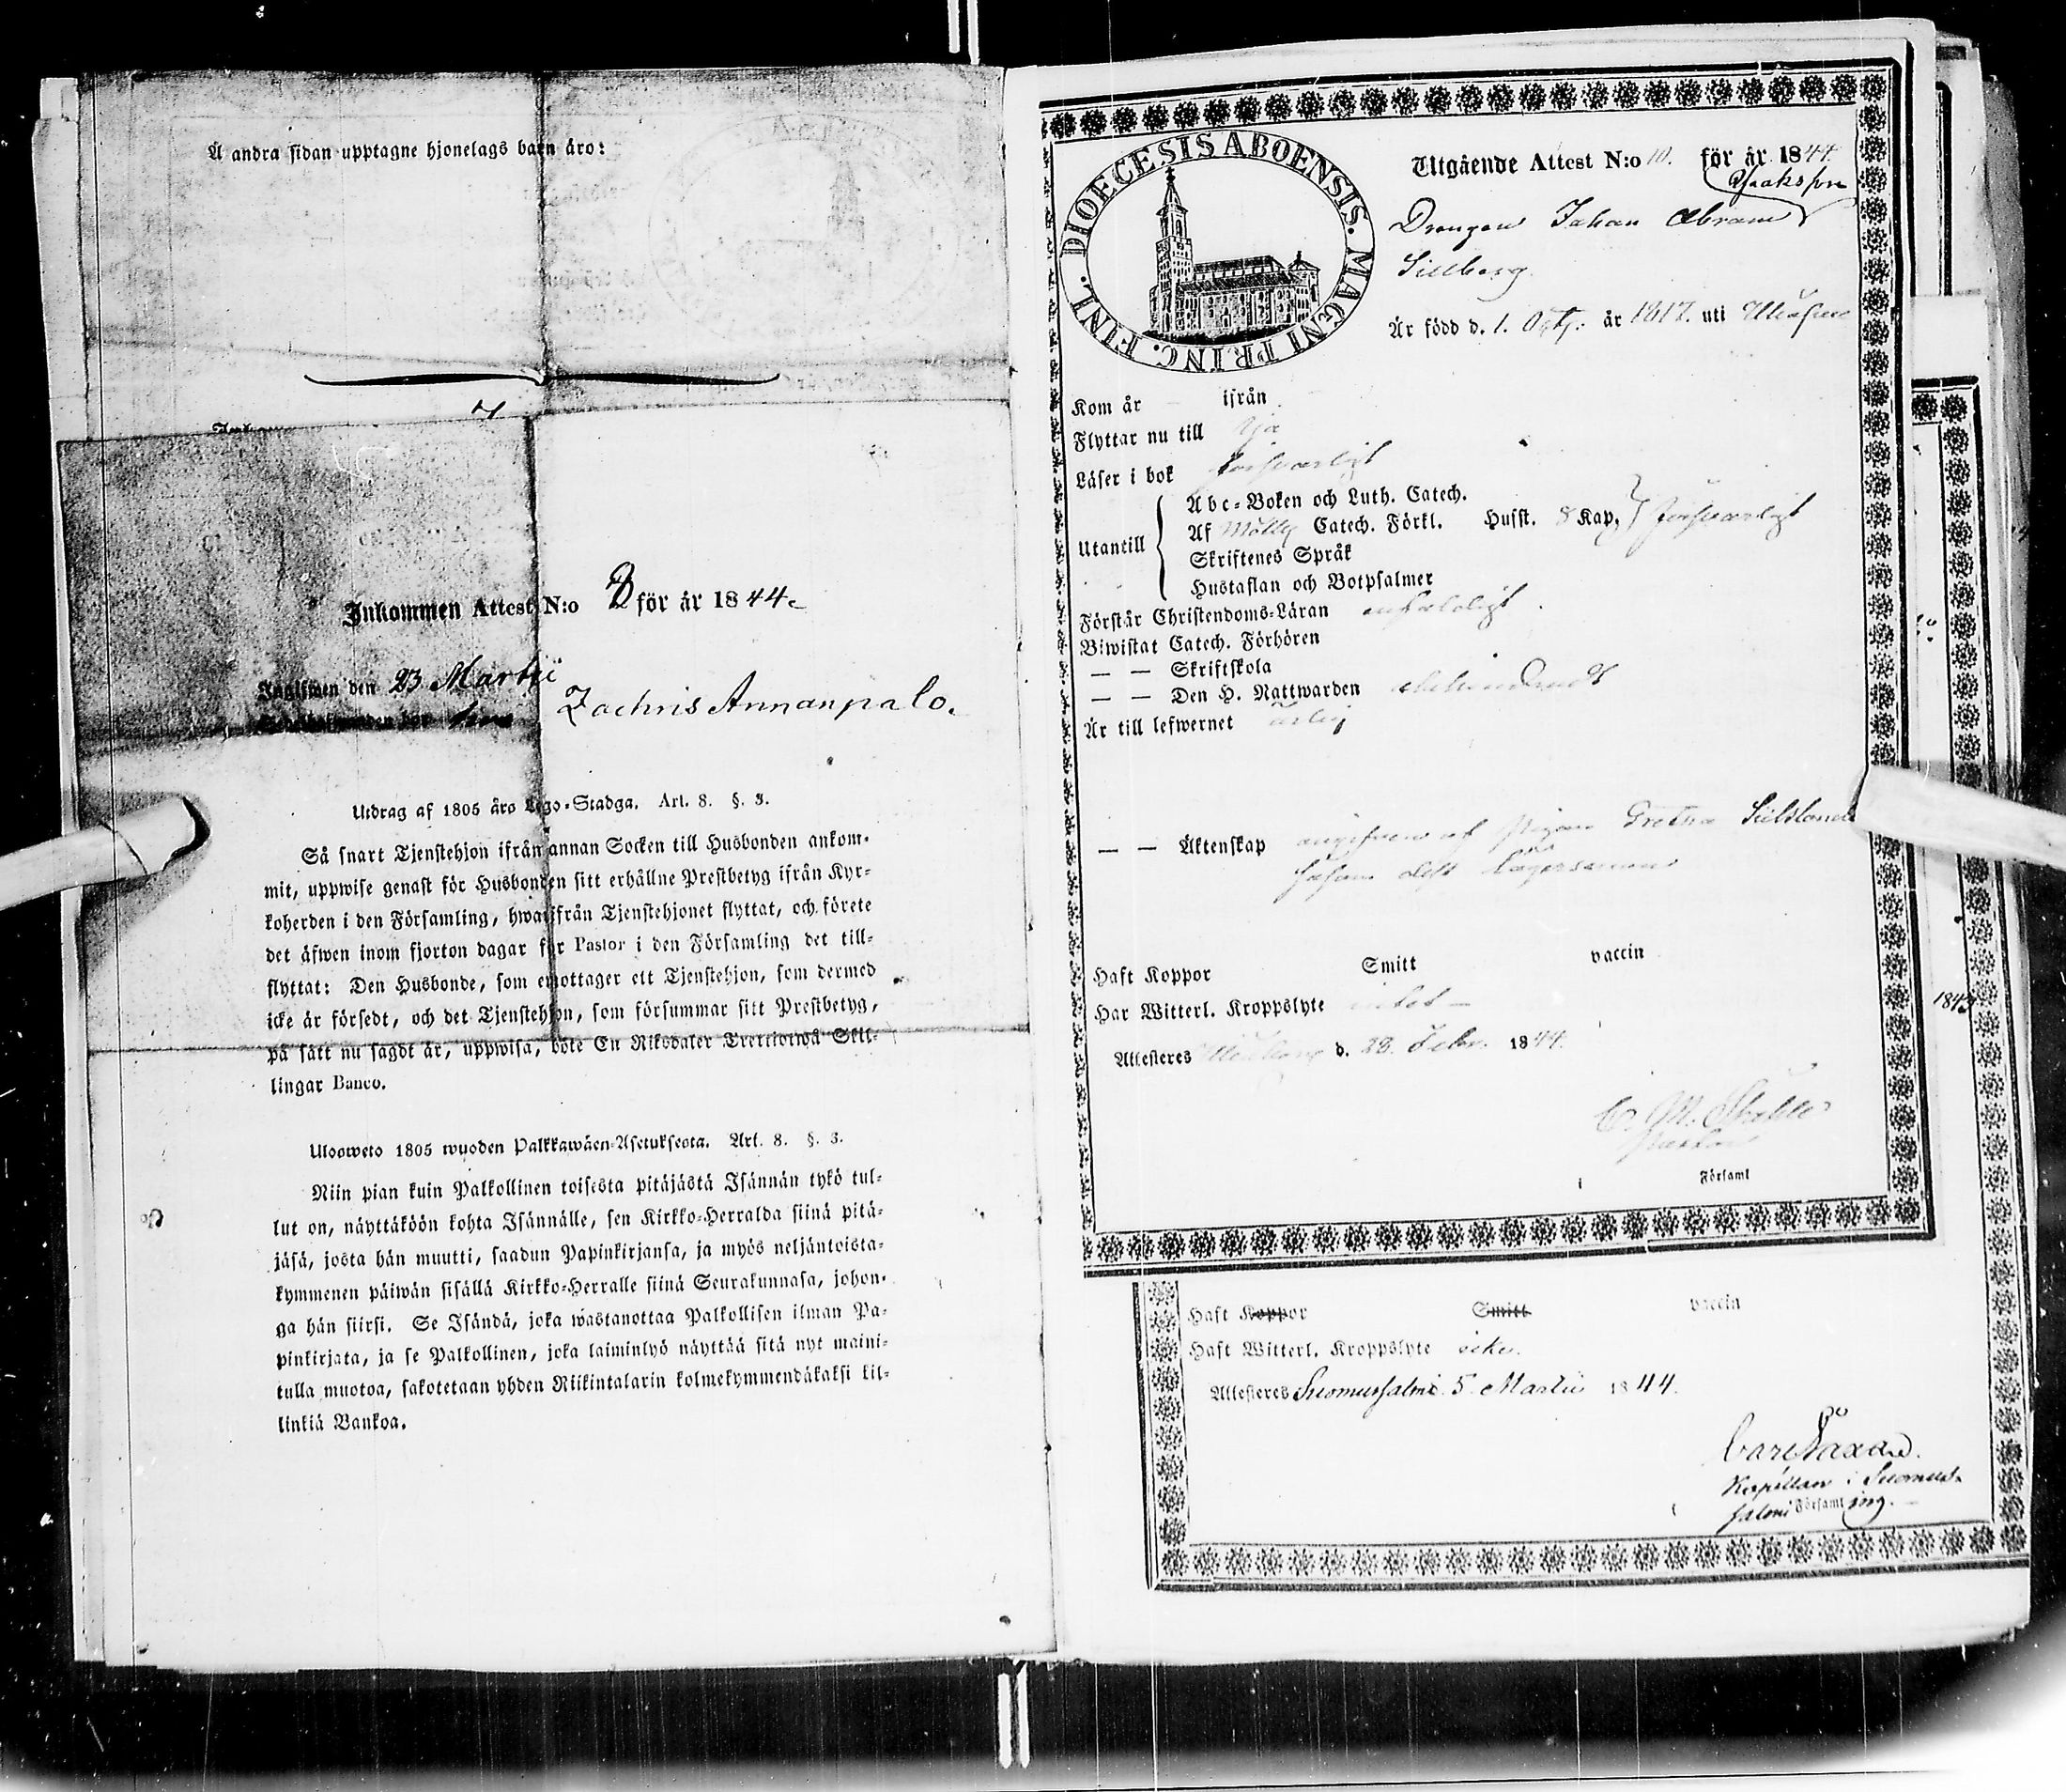 Å andra sidan upptagne hjonelags barn äro:
Inkommen Attest N:o 3 för år 1844.
Inglifwen den 23 Martii
Zachris Annanpalo.
Utdrag af 1805 års Lego-Stadga. Art. 8. §. 3.
Så snart Tjenstehjon ifrån annan Socken till Husbonden ankom-
mit, uppwise genast för Husbonden sitt erhållne Prestbetyg ifrån Kyr-
koherden i den Församling, hwarifrån Tjenstehjonet flyttat, och förete
det äfwen inom fjorton dagar för Pastor i den Församling det till-
flyttat: Den Husbonde, som emottager ett Tjenstehjon, som dermed
icke är försedt, och det Tjenstehjon, som försummar sitt Prestbetyg,
på sätt nu sagdt är, uppwisa, böte En Riksdaler Trettiotwå Skil-
lingar Banco.
Ulosweto 1805 wuoden Palkkawäen-Asetuksesta. Art. 8. §. 3.
Niin pian kuin Palkollinen toisesta pitäjästä Isännän tykö tul-
lut on, näyttäköön kohta Isännälle, sen Kirkko-Herralda siinä pitä-
jäsä, josta hän muutti, saadun Papinkirjansa, ja myös neljäntoista-
kymmenen päiwän sisällä Kirkko-Herralle siinä Seurakunnasa, johon-
ga hän siirsi. Se Isändä, joka wastanottaa Palkollisen ilman Pa-
pinkirjata, ja se Palkollinen, joka laiminlyö näyttää sitä nyt maini-
tulla muotoa, sakotetaan yhden Riikintalarin kolmekymmendäkaksi kil-
linkiä Bankoa.
DIOECESIS ABOENSIS. MAGNI PRINC. FINL.
Utgående Attest N:o 10. för år 1844.
Isaksson
Drengen Johan Abram
Sillberg.
Är född d. 1. Oct. år 1817. uti
Kom år ifrån
Flyttar nu till
Läser i bok försvarligt
Abc-Boken och Luth. Catech.
Utantill Af Catech. Förkl. Husst. 8 Kap. försvarligt
Skriftenes Språk
Hustaflan och Botpsalmer
Förstår Christendoms-Läran
Biwistat Catech. Förhören
— — Skriftskola
— — Den H. Nattwarden
Är till lefwernet ärlig
— — Äktenskap angifven af pigan Greta
såsom dess lägersman
Haft Koppor Smitt vaccin
Har Witterl. Kroppslyte intet —
Attesteres d. 28. Febr. 1844.
Församl
1843
Haft Koppor Smitt vaccin
Haft Witterl. Kroppslyte icke.
Attesteres Suomussalmi 5 Martii 1844.
Kapellan i Suomus-
salmi Församling.